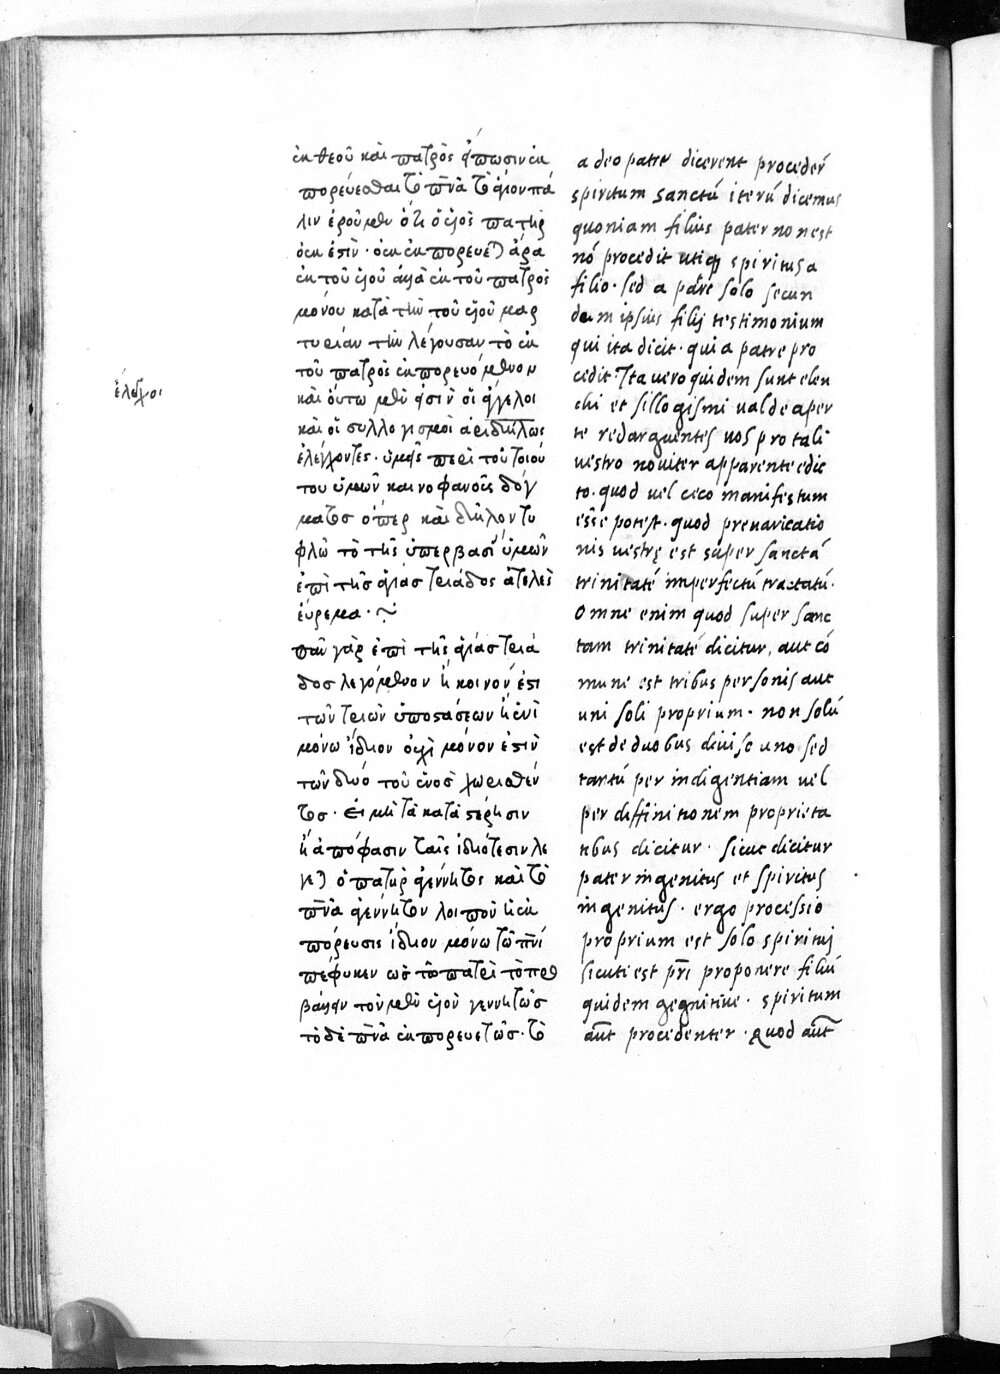 ἐκ θεοῦ καὶ πατρὸς εἴπωσιν ἐκ
πορεύεσθαι τὸ πνα τὸ ἅγιον πά
λιν ἐροῦμεν ὅτι ὁ υἱὸς πατὴρ
οὐκ ἐστὶν · οὐκ ἐκπορεύεται ἄρα
ἐκ τοῦ υἱοῦ ἀλλὰ ἐκ τοῦ πατρὸς
μόνου κατὰ τὴν τοῦ υἱοῦ μαρ
τυρίαν τὴν λέγουσαν τὸ ἐκ
τοῦ πατρὸς ἐκπορευόμενον
καὶ οὕτω μὲν φσιν οἱ
καὶ οἱ συλλογισμοὶ ἀριδήλως
ἐλέγχοντες · ὑμᾶς περὶ τοῦ τοιού
του ὑμῶν καινοφανοῦς δόγ
ματος ὅπερ καὶ δῆλον τυ
φλῶ τὸ τῆς ὑπερβασί ὑμῶν
ἐπὶ τῆς ἁγίας τριάδος ἀτελὲς
εὕρεμα ·
πᾶν γὰρ ἐπὶ τῆς ἁγίας τριά
δος λεγόμενον ἢ κοινόν ἐστι
τῶν τριῶν ὑποστάσεων ἢ ἑνὶ
μόνω ἴδιον οὐχὶ μόνον ἐστὶν
τῶν δυό τοῦ ἑνὸς χωρισθέν
τος · εἰ μὴ τὰ κατὰ στέρησιν
ἢ ἀπόφασιν ταῖς ἰδιότεσιν λε
γεται ὁ πατὴρ ἀγέννητος καὶ τὸ
πνα ἀγέννητον λοιπὸν ἡ ἐκ
πόρευσις ἴδιον μόνω τῶ πνι
πέφυκεν ὡς τῶ πατρὶ τὸ προ
βάλλειν τοῦ μὲν υἱοῦ γεννητῶς
τὸ δὲ πνα ἐκπορευετῶς · τὸ
ἔλεγχοι
a deo patre dicerent proceder
spiritum sanctū iterū dicemus
quoniam filius pater non est
nō procedit utiq spiritus a
filio · sed a patre solo secun
dum ipsius filij testimonium
qui ita dicit · qui a patre pro
cedit · Ita vero quidem sunt elen
chi et sillogismi ualde aper
te redarguentes uos pro tali
uestro noviter apparente edic
to · quod uel ceco manifestum
esse potest · quod prevaricatio
nis uestrę est super sanctā
trinitatē imperfectū tractatū ·
Omne enim quod super sanc
tam trinitatē dicitur, aut cō
mune est tribus personis aut
uni soli proprium · non solū
est de duobus diuiso uno sed
tantū per indigentiam uel
per diffinitionem proprieta
tibus dicitur · sicut dicitur
pater ingenitus et spiritus
ingenitus · ergo processio
proprium est solo spiritui
sicuti est pri proponere filiū
quidem gegnitiue · spiritum
aut procedenter · Quod aut